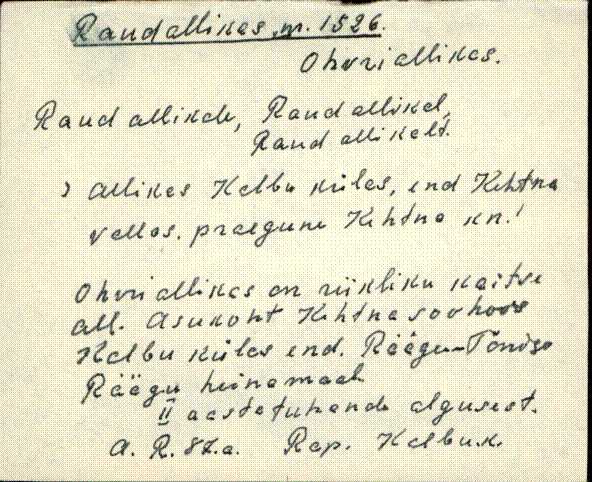 Raudallikas, m. 1526.
Ohvriallikas.
Raudallikale, Raudallikal,
Raudallikalt.
> allikas Kelbu külas, end Kehtna
vallas. praegune Kehtna kn.!
Ohvriallikas on riikliku kaitse
all. Asukoht Kehtna soohoos
Kelbu külas end. Räägu-Tõnise
Räägu heinamaal
II aastatuhande algusest.
A. R. 87.a. Rap. Kelbu k.